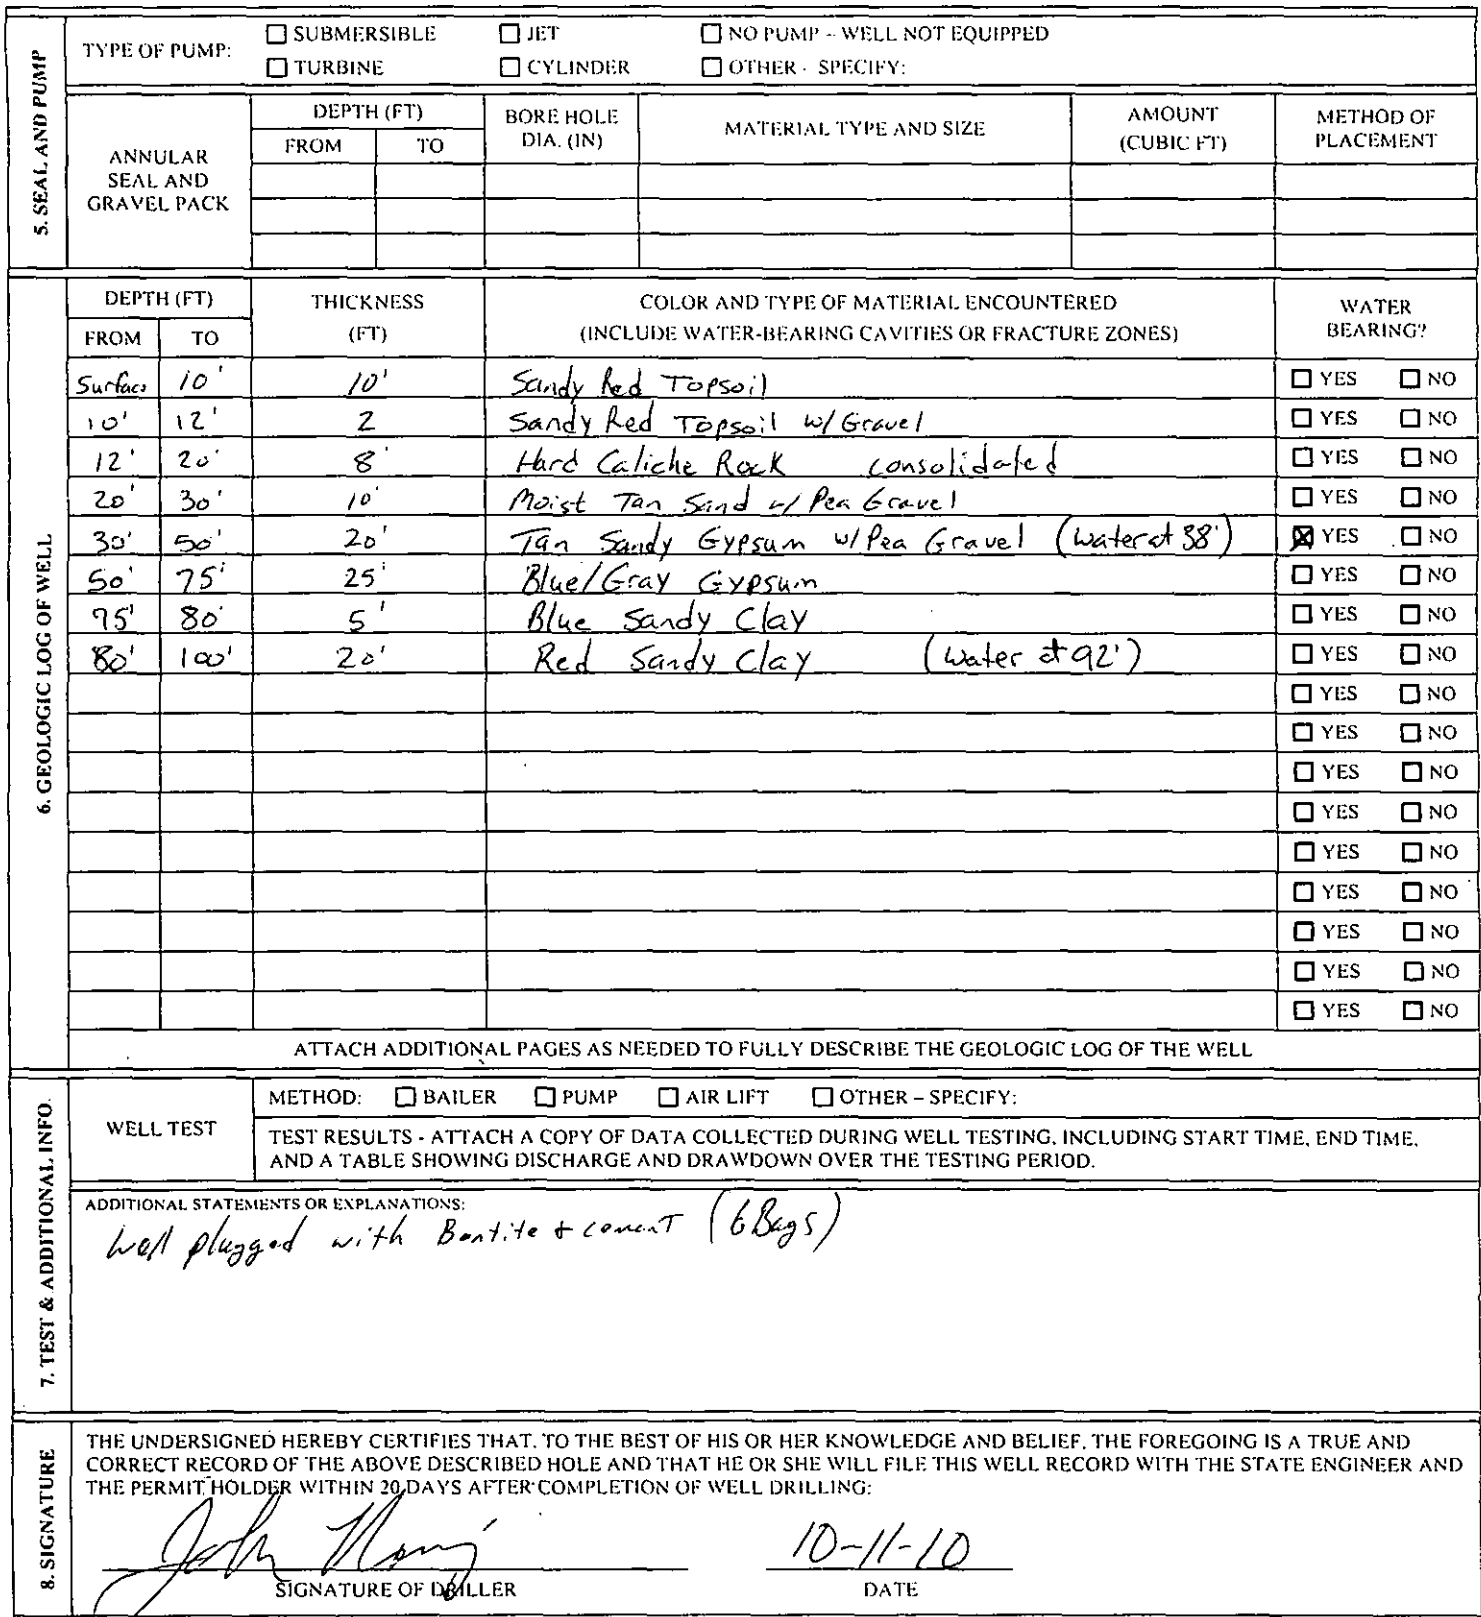 5. SEAL AND PUMP
TYPE OF PUMP: ☐ SUBMERSIBLE ☐ JET ☐ NO PUMP – WELL NOT EQUIPPED
☐ TURBINE ☐ CYLINDER ☐ OTHER - SPECIFY:
ANNULAR SEAL AND GRAVEL PACK
DEPTH (FT) BORE HOLE DIA. (IN) MATERIAL TYPE AND SIZE AMOUNT (CUBIC FT) METHOD OF PLACEMENT
FROM TO
6. GEOLOGIC LOG OF WELL
DEPTH (FT) THICKNESS (FT) COLOR AND TYPE OF MATERIAL ENCOUNTERED WATER BEARING?
FROM TO (INCLUDE WATER-BEARING CAVITIES OR FRACTURE ZONES)
Surface 10' 10' Sandy Red Topsoil ☐ YES ☐ NO
10' 12' 2 Sandy Red Topsoil w/ Gravel ☐ YES ☐ NO
12' 20' 8' Hard Caliche Rock consolidated ☐ YES ☐ NO
20' 30' 10' Moist Tan Sand w/ Pea Gravel ☐ YES ☐ NO
30' 50' 20' Tan Sandy Gypsum w/ Pea Gravel (water at 38') ☒ YES ☐ NO
50' 75' 25' Blue/Gray Gypsum ☐ YES ☐ NO
75' 80' 5' Blue Sandy Clay ☐ YES ☐ NO
80' 100' 20' Red Sandy Clay (water at 92') ☐ YES ☐ NO
☐ YES ☐ NO
☐ YES ☐ NO
☐ YES ☐ NO
☐ YES ☐ NO
☐ YES ☐ NO
☐ YES ☐ NO
☐ YES ☐ NO
☐ YES ☐ NO
☐ YES ☐ NO
ATTACH ADDITIONAL PAGES AS NEEDED TO FULLY DESCRIBE THE GEOLOGIC LOG OF THE WELL
7. TEST & ADDITIONAL INFO.
WELL TEST
METHOD: ☐ BAILER ☐ PUMP ☐ AIR LIFT ☐ OTHER – SPECIFY:
TEST RESULTS - ATTACH A COPY OF DATA COLLECTED DURING WELL TESTING, INCLUDING START TIME, END TIME,
AND A TABLE SHOWING DISCHARGE AND DRAWDOWN OVER THE TESTING PERIOD.
ADDITIONAL STATEMENTS OR EXPLANATIONS:
Well plugged with Bentite + cement (6 Bags)
8. SIGNATURE
THE UNDERSIGNED HEREBY CERTIFIES THAT, TO THE BEST OF HIS OR HER KNOWLEDGE AND BELIEF, THE FOREGOING IS A TRUE AND
CORRECT RECORD OF THE ABOVE DESCRIBED HOLE AND THAT HE OR SHE WILL FILE THIS WELL RECORD WITH THE STATE ENGINEER AND
THE PERMIT HOLDER WITHIN 20 DAYS AFTER COMPLETION OF WELL DRILLING:
John 10-11-10
SIGNATURE OF DRILLER DATE